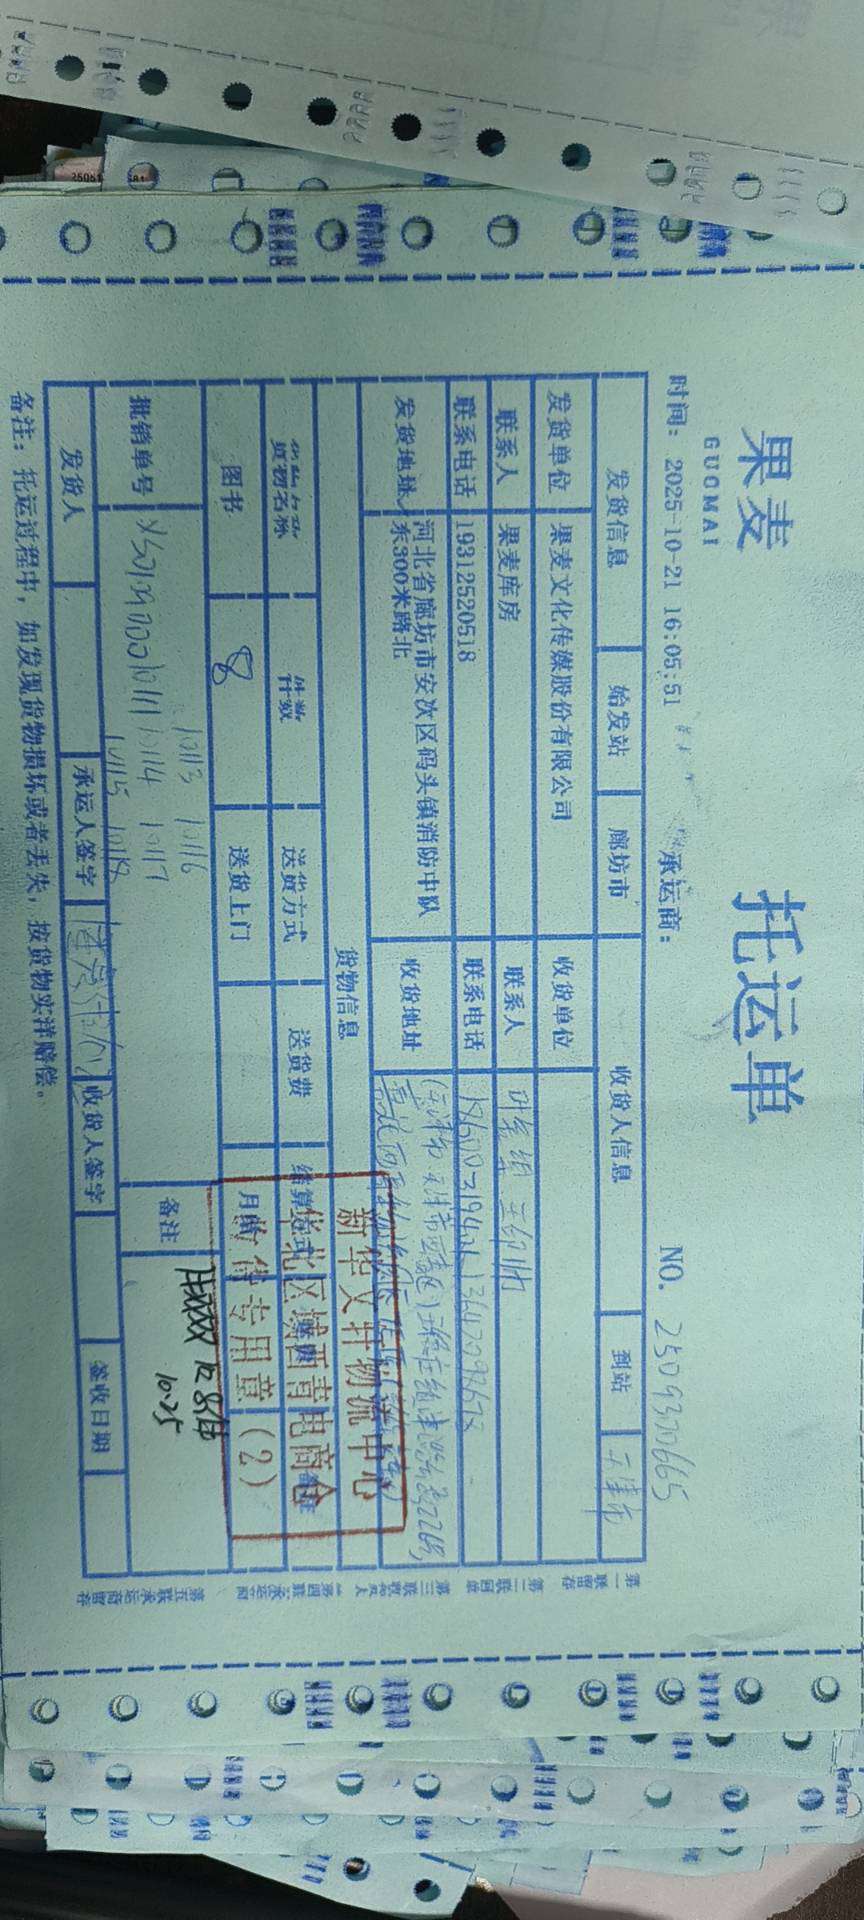 果麦
GUOMAI
托运单
时间: 2025-10-21 16:05:51 承运商: NO. 2509370665
发货信息 始发站 廊坊市 收货人信息 到站 天津市
发货单位 果麦文化传媒股份有限公司 收货单位
联系人 果麦库房 联系人
联系电话 19312520518 联系电话
发货地址 河北省廊坊市安次区码头镇消防中队 收货地址
东300米路北
货物信息
货物名称 件数 送货方式 送货费 结算方式 备注
图书 8 送货上门 月结
新华文轩物流中心
华北区域西青电商仓
收货专用章(2)
批销单号 10113 10116
10114 10117
10115 10118
备注
10.25
发货人 承运人签字 收货人签字 签收日期
备注: 托运过程中, 如发现货物损坏或者丢失, 按货物实洋赔偿。
第一联留存 第二联回单 第三联收货人 第四联承运商 第五联承运商留存